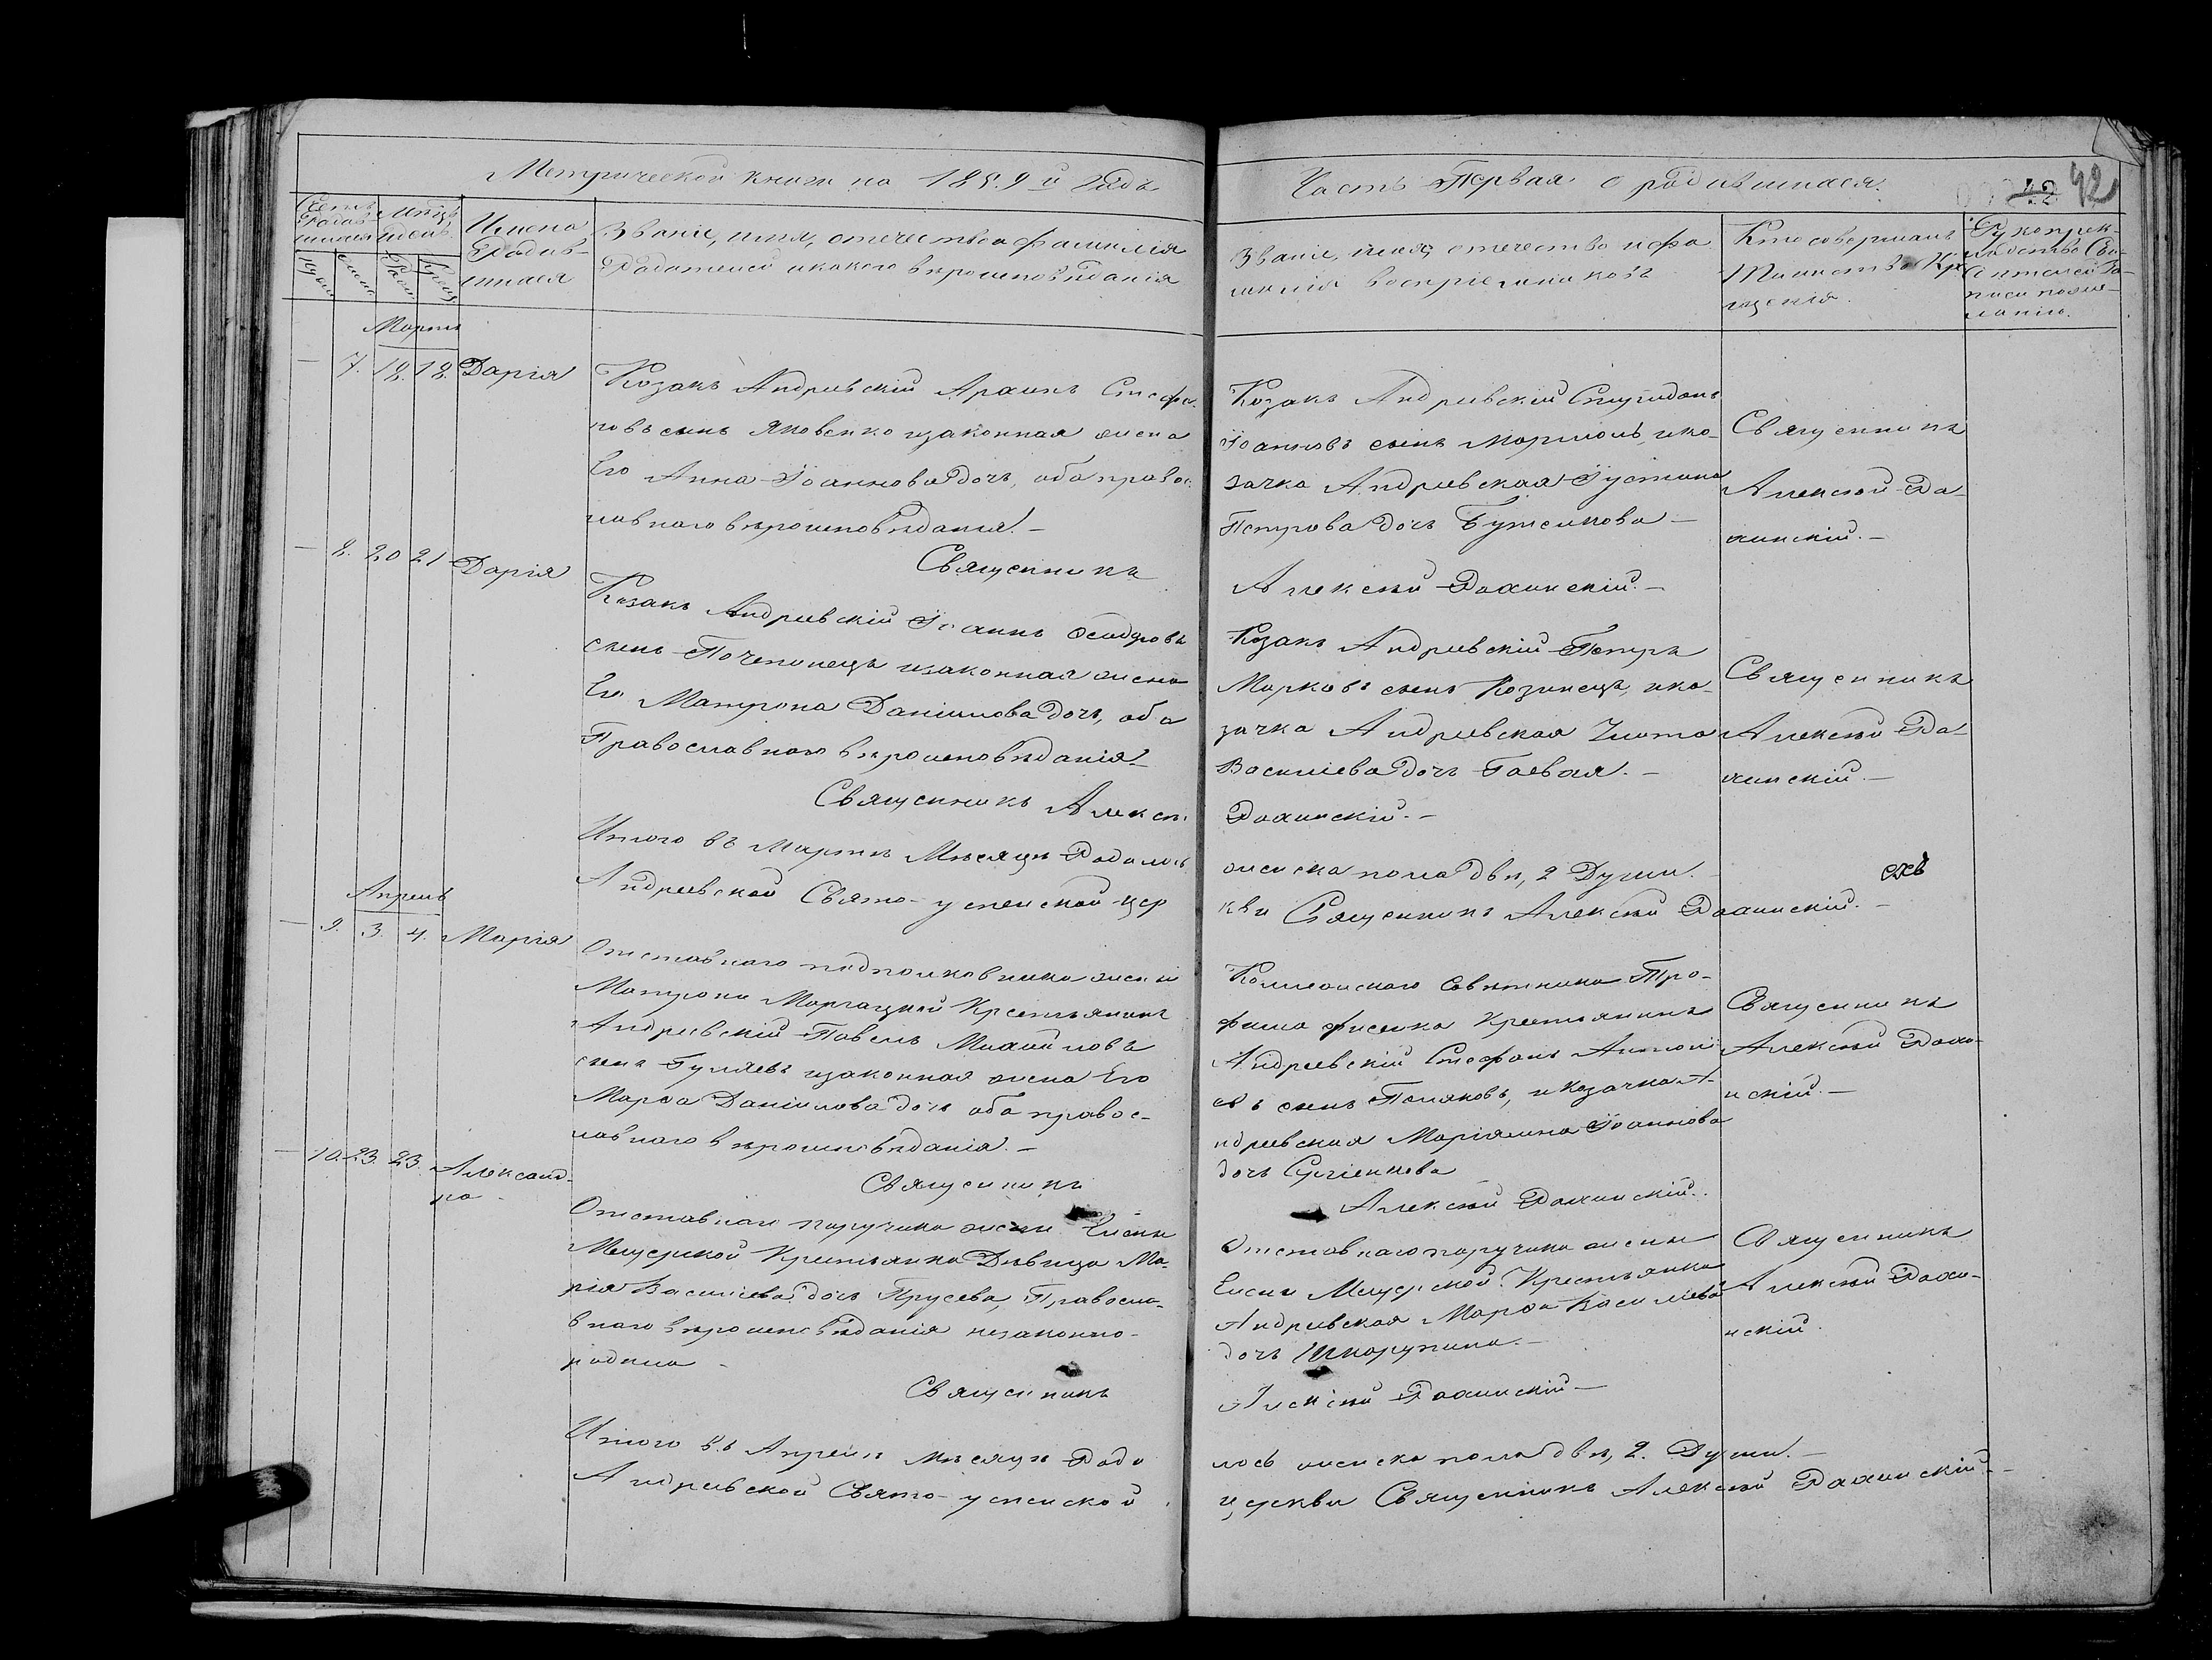 Метрической книги на 1859й Годъ
Часть Первая о родившихся.
42 42
Счетъ Родившихся
Мѣсяцъ и день
мужеска
женска
Рожд.
Крещ.
Имена Родившихся
Званіе, имя, отечество и фамилія
Родителей и какого вѣроисповѣданія
Званіе, имя, отечество и фа
милія воспріемниковъ
Кто совершалъ
Таинство Кре
щенія.
Рукоприк-
ладство Сви-
дѣтелей За-
писи по же-
ланію.
Мартъ
— 7. 18. 18. Дарія
Козакъ Андреевскій Стефа-
новъ сынъ Яковенко и законная жена
Его Анна Іоаннова дочь, оба правос-
лавнаго вѣроисповѣданія. —
Священникъ
Козакъ Андреевскій Спиридонъ
Іоанновъ сынъ и ко-
зачка Андреевская Іустина
Петрова дочь Бутенкова —
Алексѣй Дахинскій. —
Священникъ
Алексѣй Да-
хинскій. —
— 8. 20 21 Дарія
Козакъ Андреевскій Іоаннъ Ѳеодоровъ
сынъ Почепинецъ и законная жена
Его Матрона Даніилова дочь, оба
Православнаго вѣроисповѣданія. —
Священникъ Алексѣ
Козакъ Андреевскій Петръ
Марковъ сынъ Козинецъ, и ко-
зачка Андреевская
Василіева дочь Гаевая. —
Дахинскій. —
Священникъ
Алексѣй Да-
хинскій. —
Итого въ Мартѣ Мѣсяцѣ Родилось
женска пола двѣ, 2 Души.
Андреевской Свято-успенской цер
кви Священникъ Алексѣй Дахинскій. —
Апрель
— 9. 3. 4. Марія
Отставнаго подполковника жены
Матроны Крестьянинъ
Андреевскій Павелъ Михайловъ
сынъ Гуляевъ и законная жена Его
Марѳа Даніилова дочь оба правос-
лавнаго вѣроисповѣданія. —
Священникъ
Совѣтника Тро-
фима Фисенка Крестьянинъ
Андреевскій Стефанъ Антоні
евъ сынъ Поляковъ, и козачка А-
ндреевская Маріямна Іоаннова
дочь Сергіенкова
Алексѣй Дахинскій.
Священникъ
Алексѣй Дахи-
нскій. —
— 10. 23. 23. Александ-
ра —
Отставнаго поручика жены Елены
Мещерской Крестьянка Дѣвица Ма-
рія Василіева дочь Прусева, Правосла-
внаго вѣроисповѣданія незаконно-
родила —
Священникъ
Отставнаго поручика жены
Елены Мещерской Крестьянка
Андреевская Марѳа Василіева
дочь Шкорупина. —
Алексѣй Дахинскій —
Священникъ
Алексѣй Дахи-
нскій.
Итого въ Апрелѣ мѣсяцѣ Роди
лось женска пола двѣ, 2. Души. —
Андреевской Свято-успенской
церкви Священникъ Алексѣй Дахинскій. —